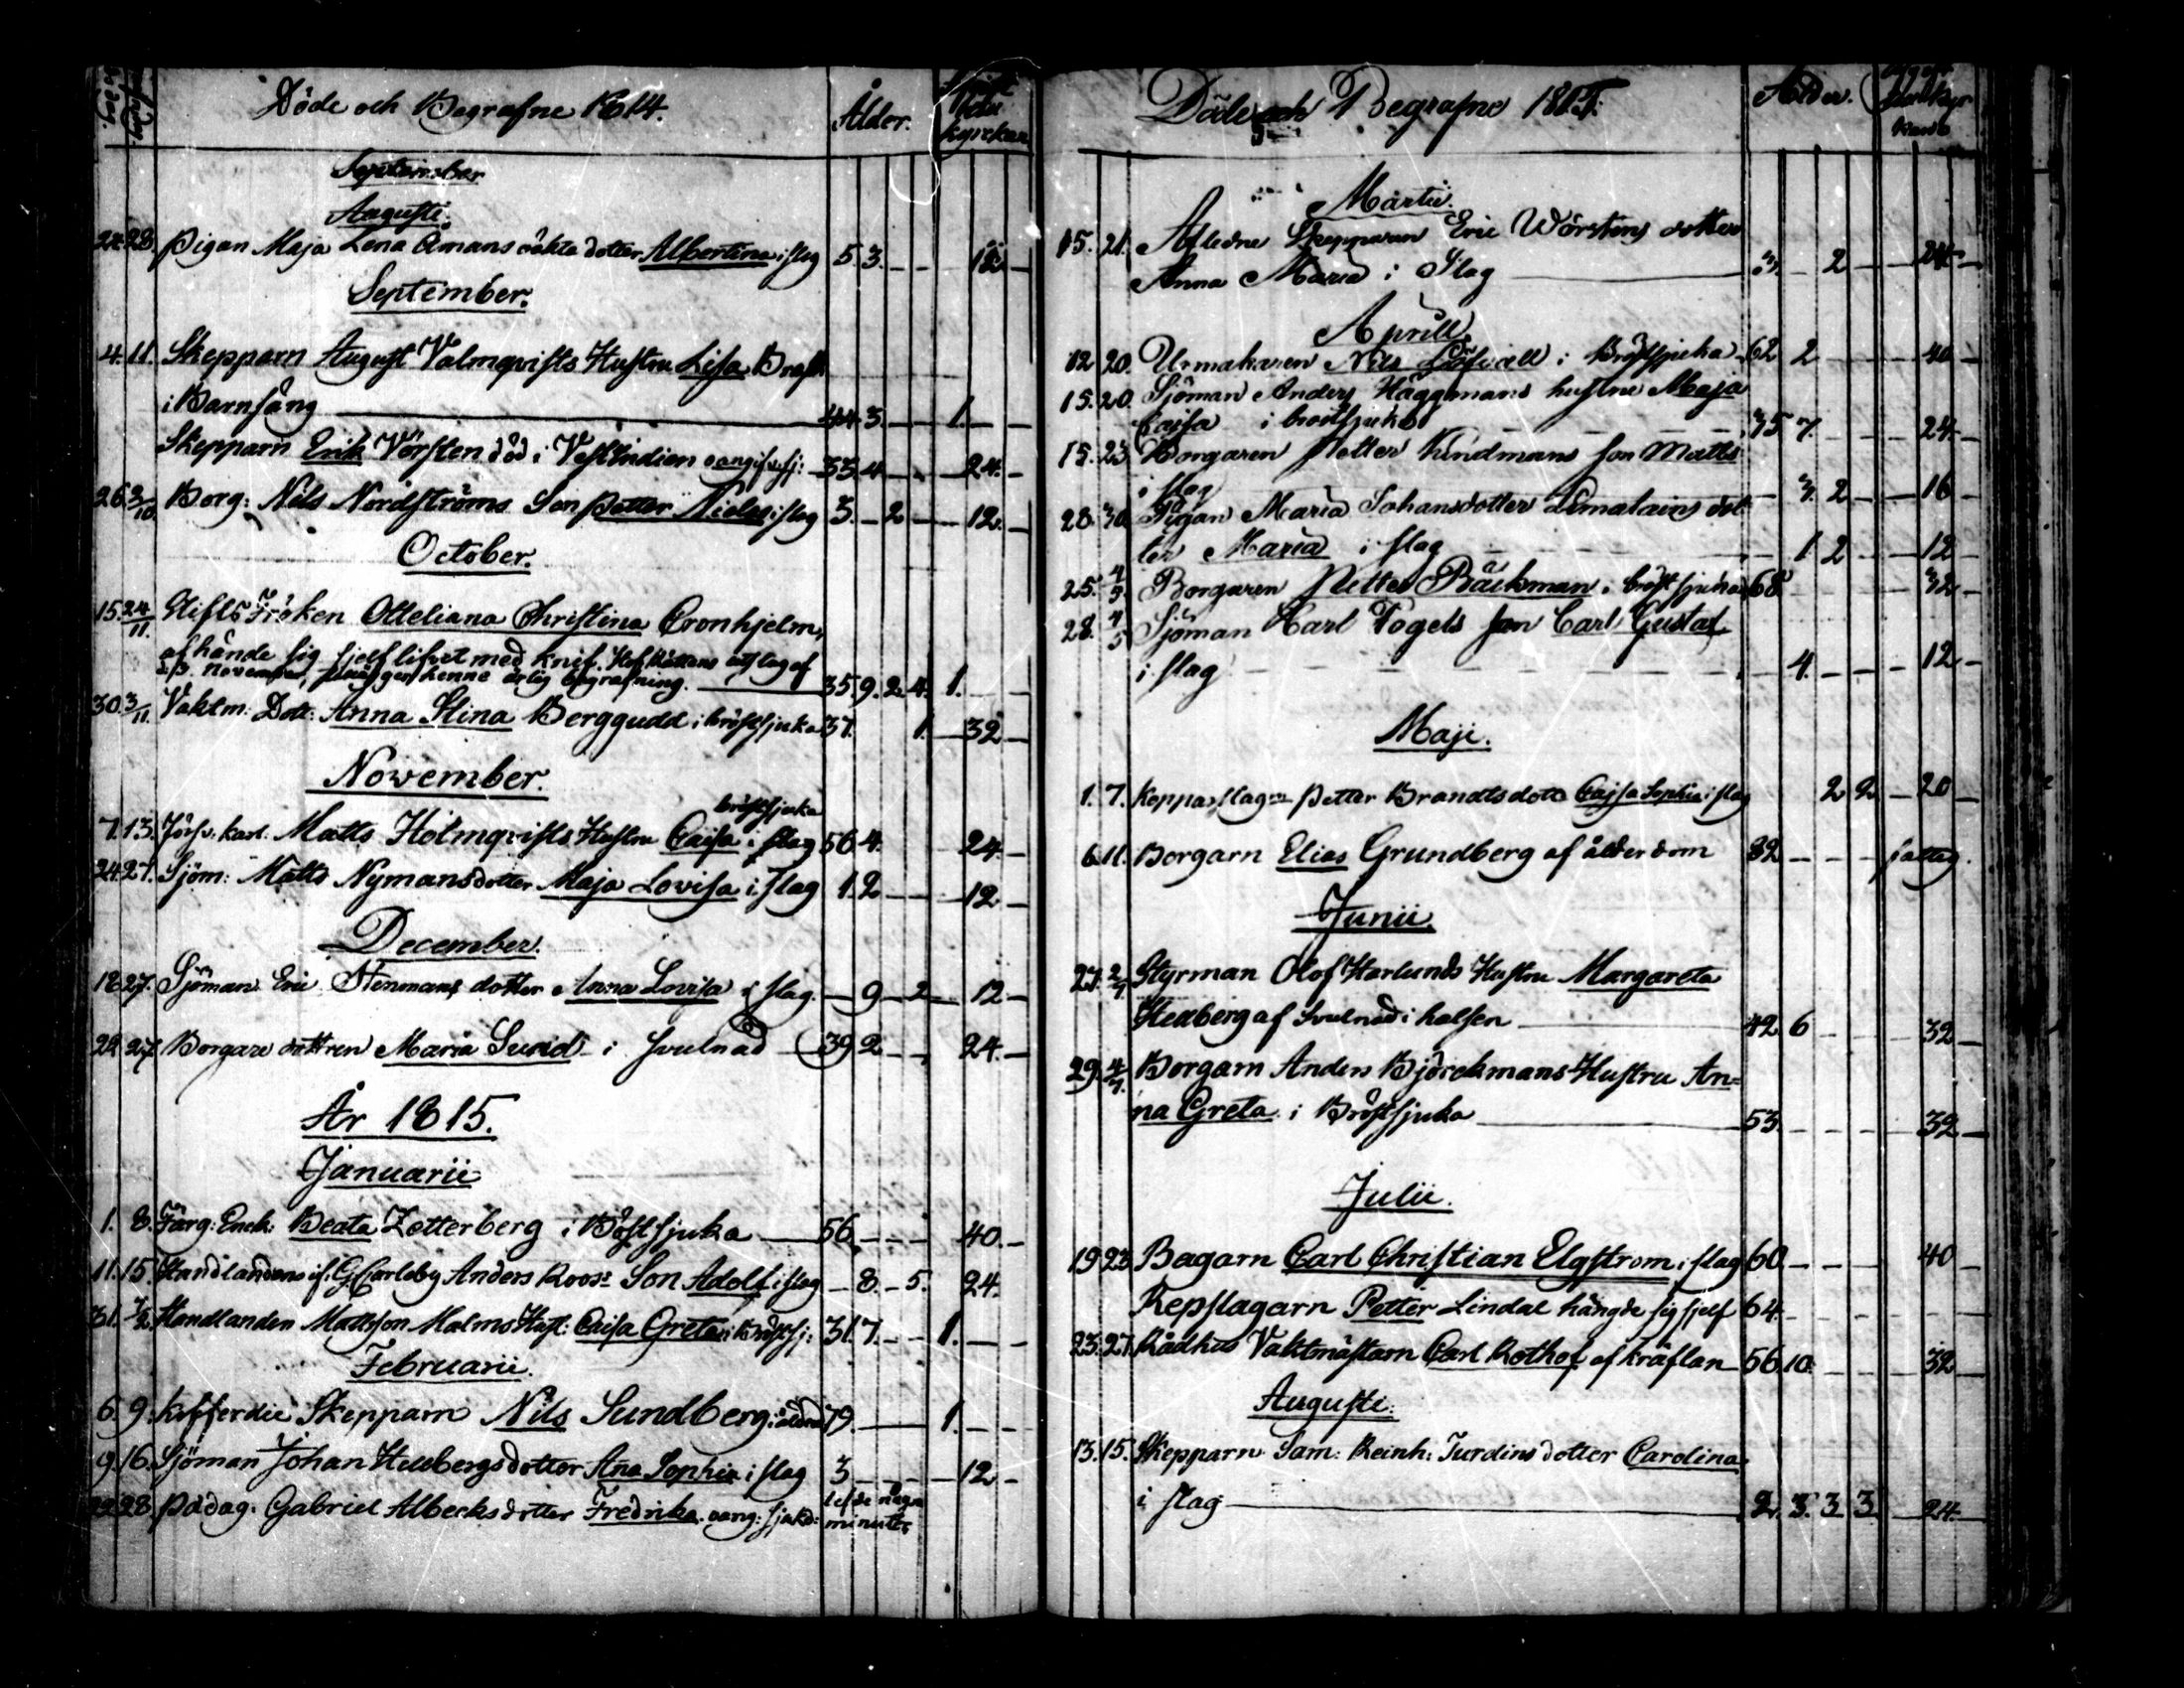 Döde och Begrafne 1814.
Ålder.
kyrckan
September
Augusti.
24. 28. Pigan Maja Lena Amans oäkta dotter Albertina i slag 5. 3. – – 12 –
September.
4. 11. Skepparn August Valmqvists Hustru Lisa
i Barnsäng 44. 3. – – 1. – –
Skepparn Erik Vörsten död i Vest Indien oangifv. sj: 33. 4 – – 24. –
26. 2/10. Borg: Nils Nordströms Son Petter Niclas i slag 3. – 2 – – 12. –
October.
15. 24/11. Stifts Fröken Otteliana Christina Cronhjelm,
afhände sig sjelf lifvet med knif. Hof Rättens utslag af
d. 3. November, henne ärlig begrafning. 35. 9. 2. 4. 1. – –
30. 3/11. Vaktm: Dott: Anna Stina Berggudd i bröstsjuka 37. 1. – 32 –
November.
bröstsjuka
7. 13. karl. Matts Holmqvists Hustru Caisa i slag 56. 4. – – 24. –
24. 27. Sjöm: Matts Nymans dotter Maja Lovisa i slag 1. 2 – – – 12 –
December.
18. 27. Sjöman Eric Stenmans dotter Anna Lovisa i slag. – 9 – 2 – 12 –
22. 27. Borgare dottren Maria Sund i svulnad 39 2 – – 24. –
År 1815.
Januarii
1. 8. Färg: Enck: Beata Zetterberg i Bröstsjuka 56. – – – 40. –
11. 15. Handlandens i G: Carleby Anders Roos: Son Adolf i slag – 8. – 5. 24.
31. 7/2. Handlanden Mattsson Malms Hust: Caisa Greta i Bröstsj: 31. 7. – – 1. – –
Februarii.
6. 9. Kofferdie Skepparn Nils Sundberg i ålderd 79. 1. – –
9. 16. Sjöman Johan Hedbergs dotter Aña Sophia i slag 3 – – – – 12 –
22. 28. Pädag: Gabriel Albecks dotter Fredrika. oang: sjukd: lefde några
minuter
Döde och Begrafne 1815.
Ålder.
Martii.
15. 21. Afledne Skepparen Eric Wörstens dotter
Anna Maria i Slag 3. – 2 – – 24. –
Aprill.
12 20. Urmakaren Nils i Bröstsjuka 62 2 40 –
15. 20. Sjöman Anders Häggmans hustru Maja
Cajsa i bröstsjuka 35 7. 24. –
15. 23 Borgaren Petter Lindmans son Matts
i slag – 3. 2 – – 16 –
28. 30. Pigan Maria Johansdotter dot
ter Maria i slag – 1 2 – – 12 –
25. 4/5. Borgaren Petter Bäckman i bröstsjuka 68 32 –
28. 4/5 Sjöman Karl Vogels son Carl Gustaf
i slag – 4. – – 12 –
Maji.
1. 7. Kopparslagrn Petter Brandts dott: Cajsa Sophia i slag 2 2 – 20 –
6. 11. Borgarn Elias Grundberg af ålderdom 82 – – – fattig.
Junii.
27. 2/7. Styrman Olof Harlunds Hustru Margareta
Hedberg af Svulnad i halsen 42 6 – – 32 –
29. 4/7. Borgarn Anders Björckmans Hustru An=
na Greta i Bröstsjuka 53. – – – 32 –
Julii.
19. 23. Bagarn Carl Christian Elgström i slag 60. – – – 40 –
Repslagarn Petter Lindal hängde sig sjelf 64. – – –
23. 27. Rådhus Vaktmästarn Carl Rothof af kräftan 56. 10. – – 32 –
Augusti.
13. 15. Skepparn Sam: Reinh: Jurdins dotter Carolina
i slag 2. 3. 3. 3. 24. –